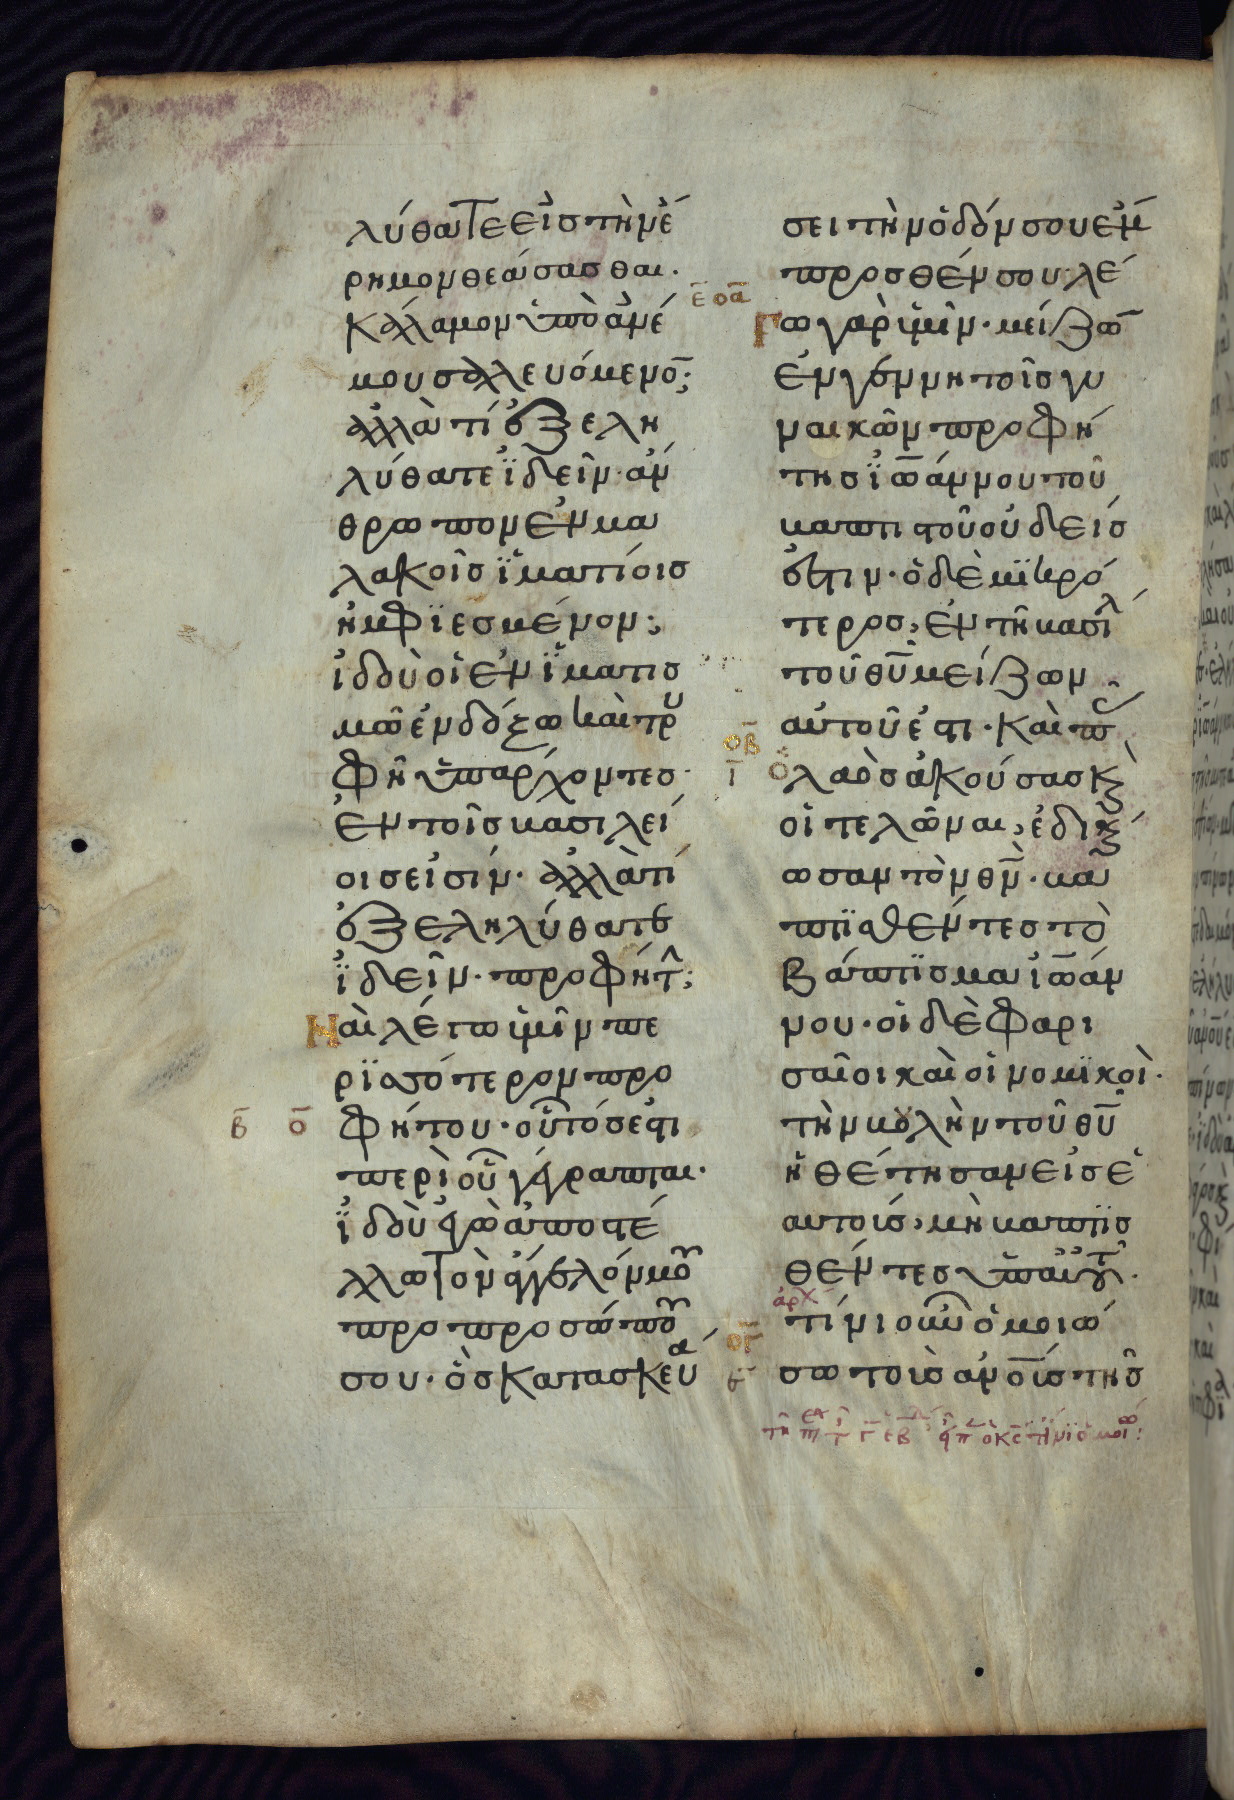 λύθατε εἰς τὴν ἔ
ρημον θεάσασθαι·
κάλαμον ὑπὸ ἀνέ
μου σαλευόμενο̅;
ἀλλὰ τί ἐξελη
λύθατε ἰ̈δεῖν· ἄν
θρωπον ἐν μα
λακοῖς ἱ̈ματίοις
ἠμφϊεσμένον;
ἰδοὺ οἱ ἐν ἱ̈ματισ
μῶ ἐνδόξω καὶ τρυ
φῆ ὑπάρχοντες·
ἐν τοῖς βασιλεί
οις εἰσίν· ἀλλὰ τί
ἐξεληλύθατε
ἰ̈δεῖν· προφήτ;
Ναὶ λέγω ὑμῖν πε
ρϊσσότερον προ
β̅ ο̅ φήτου· οὗτός ἐστι
περὶ οὗ γέγραπται·
ἰ̈δοὺ ἐγὼ ἀποστέ
λλω τὸν ἄγγελόν μου
πρὸ προσώπου
σου· ὃς κατασκευά
σει τὴν ὁδόν σου ἔμ
προσθέν σου· λέ
ε̅ οα̅ Γω γὰρ ὑμῖν· μείζω̅
ἐν γεννητοῖς γυ
ναικῶν προφή
της ἰ̈ω̅άννου τοῦ
βαπτιστοῦ οὐδείς
ἐστιν· ὁ δὲ μϊκρό
τερος, ἐν τῆ βασιλ
τοῦ θυ̅ μείζων
αὐτοῦ ἐστι· καὶ π
οβ̅ ι̅ Ὁ λαὸς ἀκούσας κ
οἱ τελῶναι, ἐδικ
ωσαν τὸν θν̅· βα
πτϊσθέντες τὸ
βάπτϊσμα ἰω̅άν
νου· οἱ δὲ φαρι
σαῖοι καὶ οἱ νομϊκοὶ·
τὴν βουλὴν τοῦ θυ̅
ἠθέτησαν εἰς ἑ
αυτοὺς, μὴ βαπτϊσ
θέντες ὑπ' αὐτοῦ·
ἀρχ
ογ̅ ε̅ τίνι οὖν ὁμοιώ
σω τοὺς ἀνο̅υς τῆς